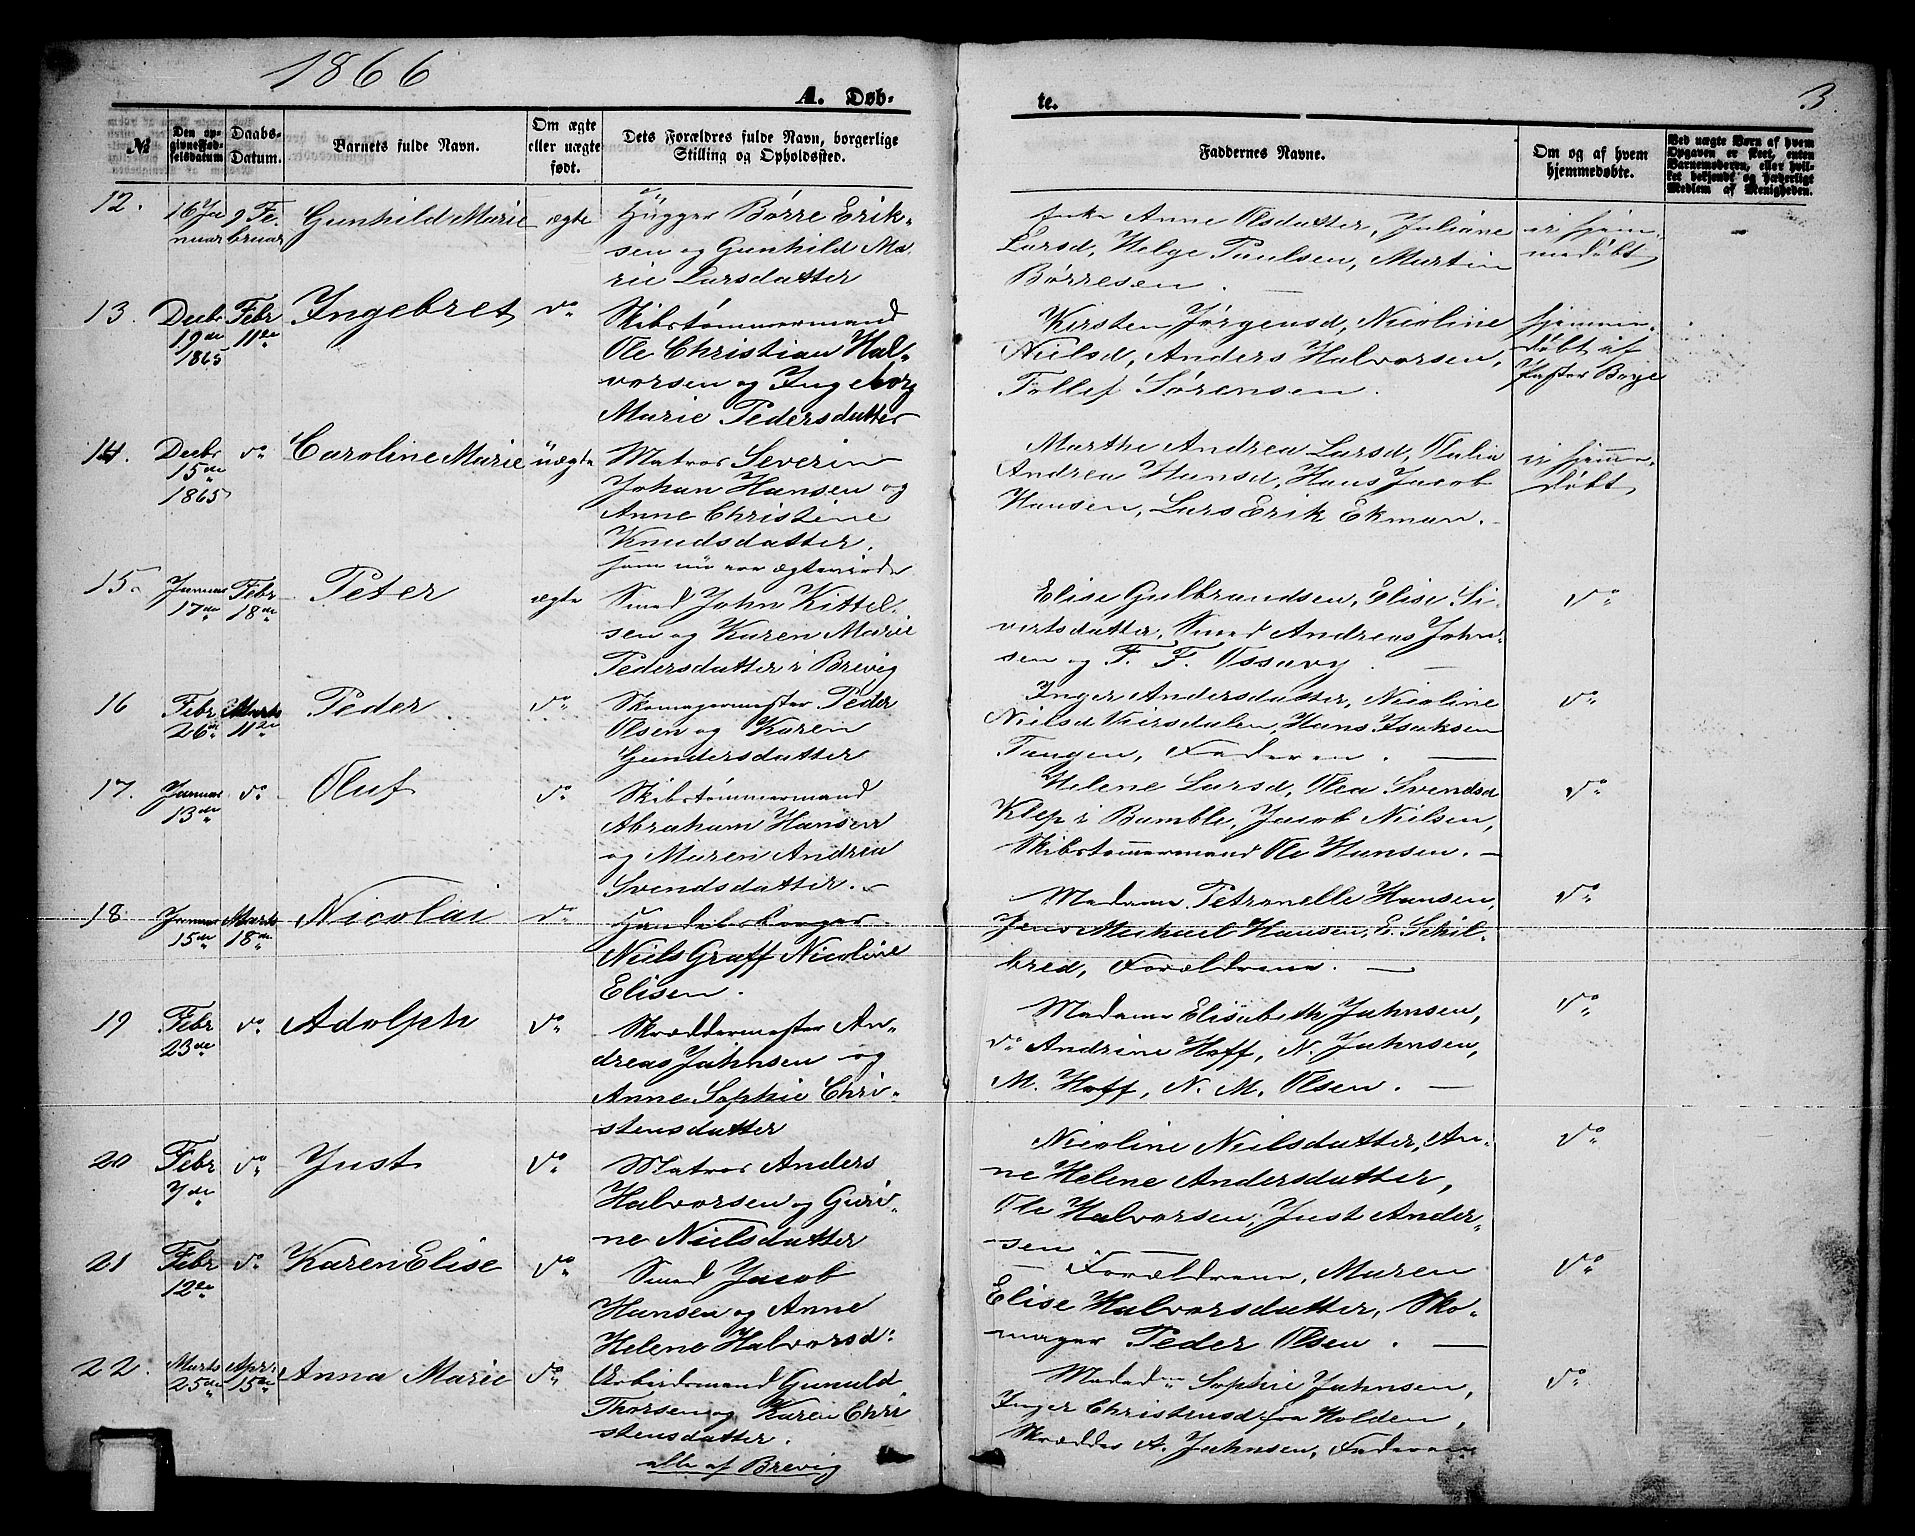 1866
A. Døb-
te.
3.
№
Den op-
givne Fød-
selsdatum
Daabs-
Datum.
Barnets fulde Navn.
Om ægte
eller uægte
født.
Dets Forældres fulde Navn, borgerlige
Stilling og Opholdssted.
Faddernes Navne.
Om og af hvem
hjemmedøbte.
Ved uægte Børn af hvem
Opgaven er skeet, enten
Barnemoderen, eller hvil-
ket bekjendt og hæderligt
Medlem af Menigheden.
12.
16 Ja
nuar
9 Fe.
bruar
Gunhild Marie
ægte
Hugger Børre Erik-
sen og Gunhild Ma.
rie Larsdatter
Anne Olsdatter, Juliane
Larsd, Helge Paulsen, Martin
Børresen.
ei hjem-
medøbt
13.
Decbr
19de
1865
Febr
11te
Ingebret
do
Skibstømmermand
Ole Christian Hal-
vorsen og Ingeborg
Marie Pedersdatter
Kirsten Jørgensd, Nicoline
Nielsd, Anders Halvorsen,
Tollef Sørensen.
hjemme-
døbt af
Pastor Borge
14.
Decbr
15de
1865
do
Caroline Marie
uægte
Matros Severin
Johan Hansen og
Anne Christine
Knudsdatter.
som nu ere ægteviede
Marthe Andrea Larsd, Olalia
Andrea Hansd, Hans Jacob
Hansen, Lars Erik Ekman.
ei hjemme-
døbt
15.
Januar
17de
Febr
18de
Peter
ægte
Smed John Kittel-
sen og Karen Marie
Pedersdatter i Brevig
Elise Gulbrandsen, Elise Si-
vertsdatter, Smed Andreas John-
sen og F. F. Ossavy.
do
16
Febr
26de
Marts
11te
Peder
do
Skomagermester Peder
Olsen og Karen
Gundersdatter
Inger Andersdatter, Nicoline
Nielsd Kiersdalen, Hans Isaksen
Tangen, Faderen.
do
17.
Januar
13de
do
Oluf
do
Skibstømmermand
Abraham Hansen
og Maren Andrea
Svendsdatter.
Helene Larsd, Olea Svendsd
Klep i Bamble, Jacob Nielsen,
Skibstømmermand Ole Hansen.
do
18
Januar
15de
Marts
18de
Nicolai
do
Handelsborger
Niels Graff Nicoline
Elisen.
Madame Petronelle Hansen,
Jens Michael Hansen, E. Schil-
bred, Forældrene.
do
19
Febr
23de
do
Adolph
do
Skræddermester An-
dreas Jahnsen og
Anne Sophie Chri-
stensdatter
Madame Elisabeth Jahnsen,
do Andrine Hoff, N. Jahnsen,
M. Hoff, N. M. Olsen.
do
20
Febr
7de
do
Just
do
Matros Anders
Halvorsen og Guri-
ne Nielsdatter
Nicoline Nielsdatter, An-
ne Helene Andersdatter,
Ole Halvorsen, Just Ander-
sen
do
21
Febr
12te
do
Karen Elise
do
Smed Jacob
Hansen og Anne
Helene Halvorsd:
Forældrene, Maren
Elise Halvorsdatter, Sko-
mager Peder Olsen.
do
22.
Marts
25de
Apr:
15de
Anna Marie
do
Arbeidsmand Gunuld
Thorsen og Karen Chri
stensdatter.
alle af Brevig
Madam Sophie Jahnsen,
Inger Christensd fra Holden,
Skrædder A. Jahnsen, Faderen
do